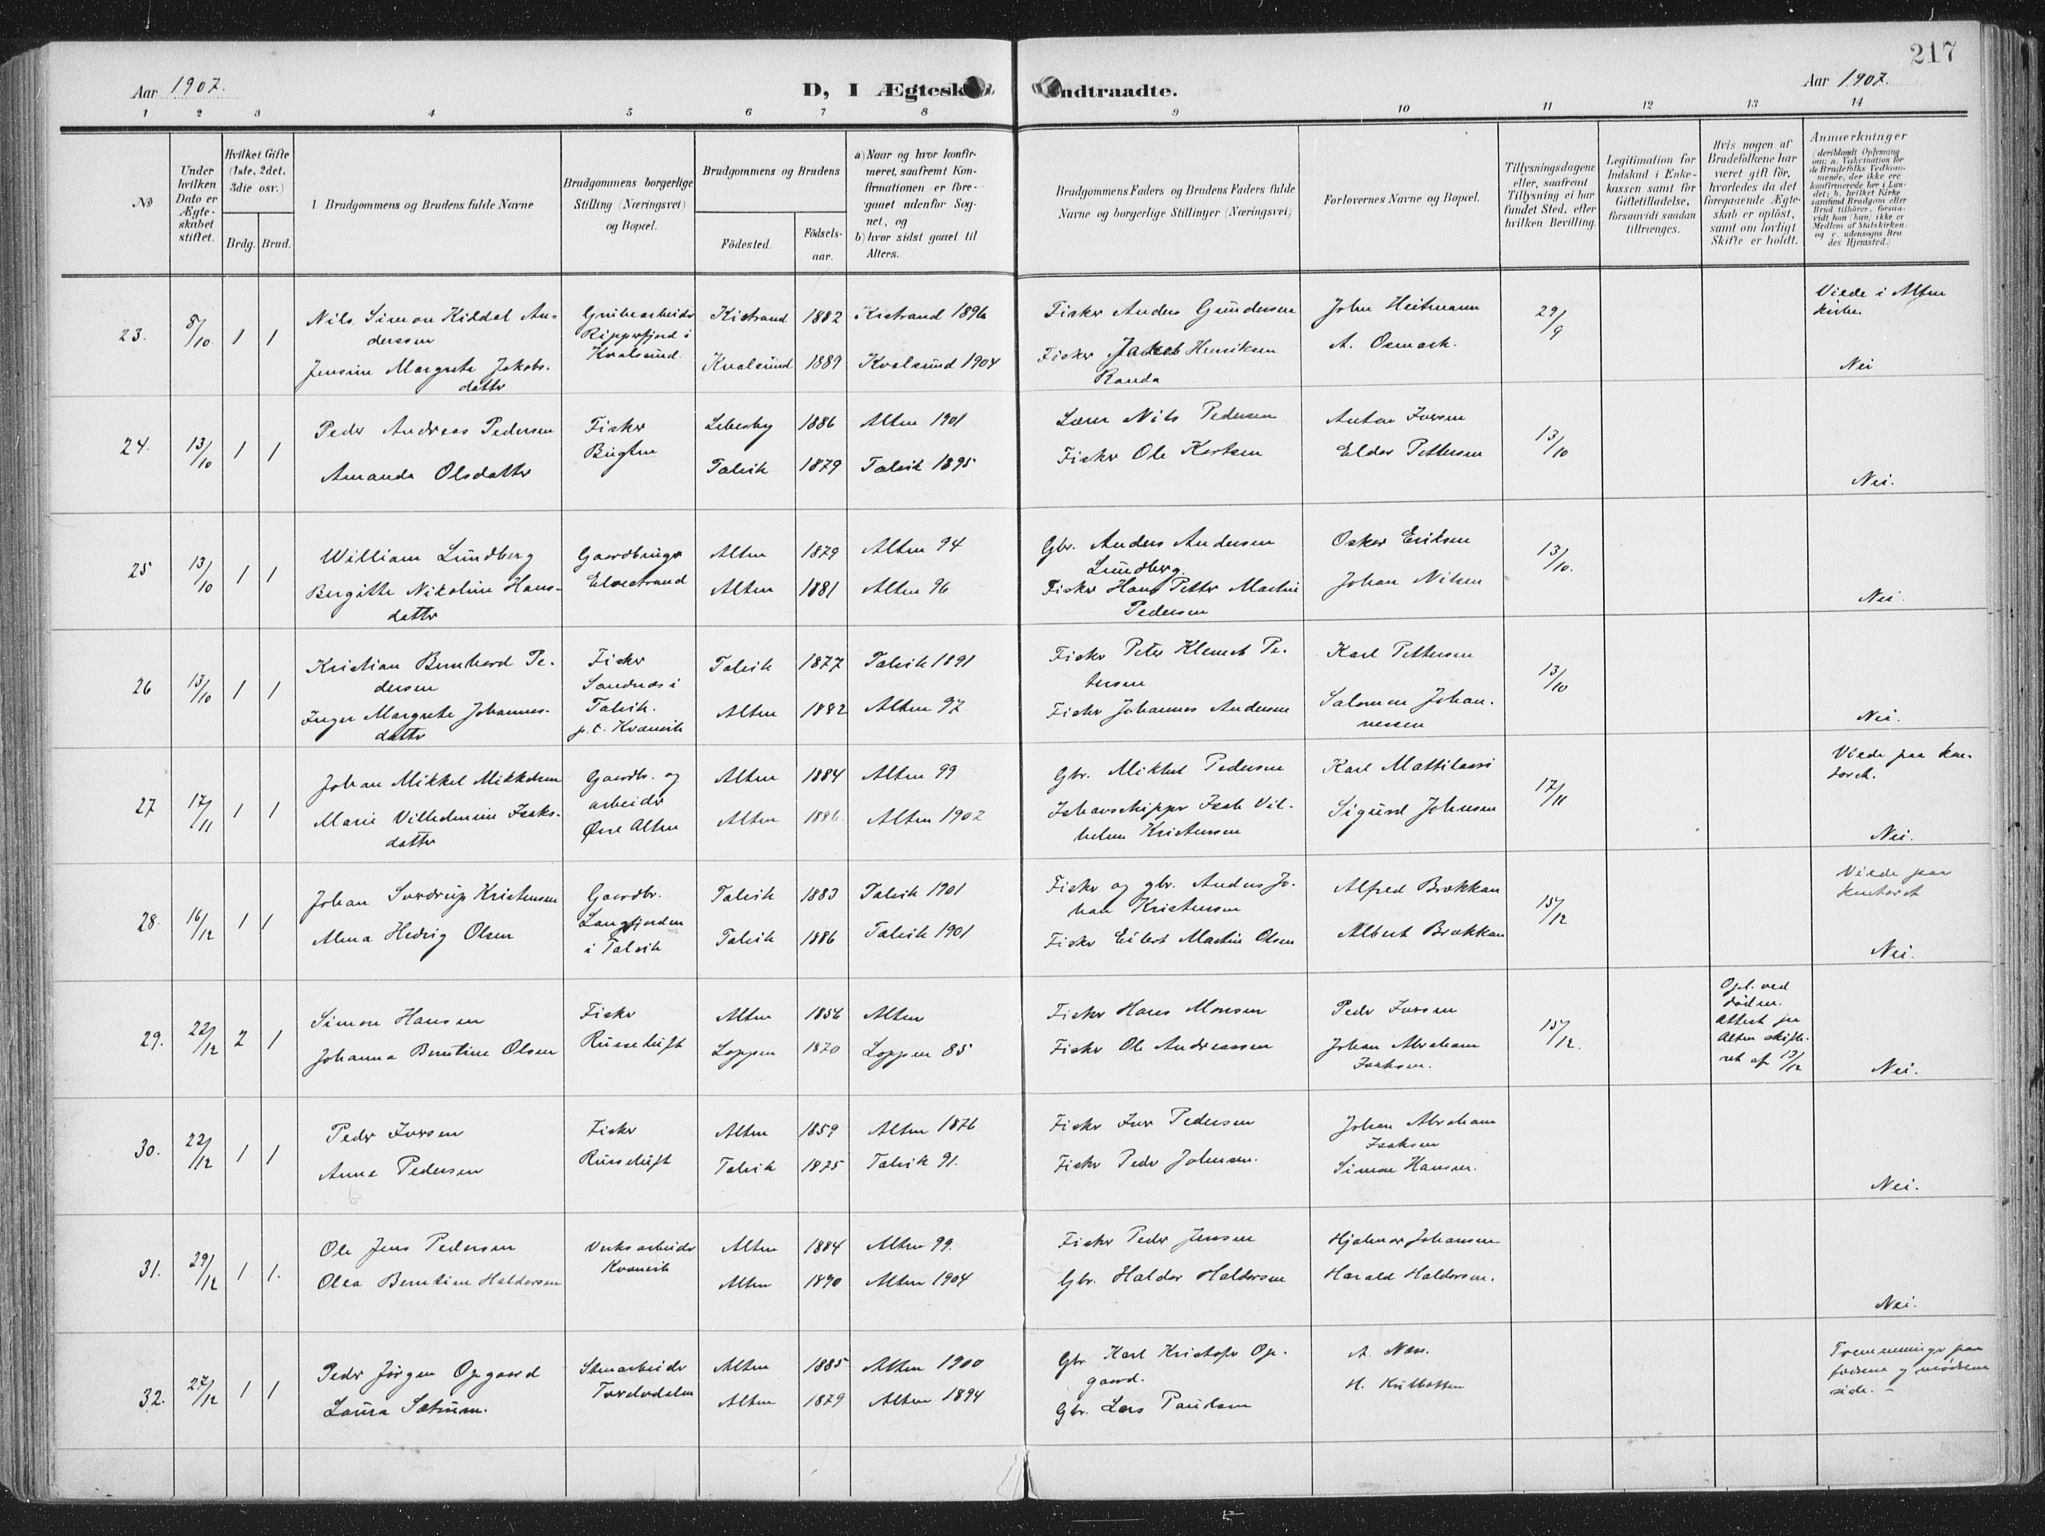 217
Aar 1907.
D, I Ægtesk
indtraadte.
Aar 1907.
1 2 3 4 5 6 7 8 9 10 11 12 13 14
No
Under hvilken Dato er Ægteskabet stiftet.
Hvilket Gifte (1ste, 2det, 3die osv.)
Brdg. Brud.
Brudgommens og Brudens fulde Navne
Brudgommens borgerlige Stilling (Næringsvei) og Bopæl.
Brudgommens og Brudens
Födested.
Födselsaar.
a) Naar og hvor konfirmeret, saafremt Konfirmationen er foregaaet udenfor Sognet, og
b) hvor sidst gaaet til Alters.
Brudgommens Faders og Brudens Faders fulde Navne og borgerlige Stillinger (Næringsvei)
Forlovernes Navne og Bopæl.
Tillysningsdagene eller, saafremt Tillysning ei har fundet Sted, efter hvilken Bevilling.
Legitimation for Indskud i Enkekassen samt for Giftetilladelse, forsaavidt saadan tiltrænges.
Hvis nogen af Brudefolkene har været gift før, hvorledes da det foregaaende Ægteskab er opløst, samt om lovligt Skifte er holdt.
Anmærkninger (deriblandt Oplysning om: a. Vakcination for de Brudefolks Vedkommende, der ikke ere konfirmerede her i Landet; b. hvilket Kirkesamfund Brudgom eller Brud tilhörer, forsaavidt han (hun) ikke er Medlem af Statskirken, og c. udensogns Brudes Hjemsted.)
23. 8/10 1 1
Nils Simon Kiddal Anderssen
Jensine Margrete Jakobsdatter
Grubearbeider Repparfjord i Kvalsund.
Kistrand 1882 Kistrand 1896
Kvalsund 1889 Kvalsund 1904
Fisker Anders Gundersen
Fisker Jakob Henriksen Randa
John Heitmann
A. Osmark.
29/9
Viede i Alten kirke.
Nei
24. 13/10 1 1
Peder Andreas Pedersen
Amanda Olsdatter
Fisker Bugten
Lebesby 1886 Alten 1901
Talvik 1879 Talvik 1895
Lærer Nils Pedersen
Fisker Ole Kortsen
Anton Iversen
Elder Pettersen
13/10
Nei.
25 13/10 1 1
William Lundberg
Bergitte Nikoline Hansdatter
Gaardbruger Elvestrand
Alten 1879 Alten 94
Alten 1881 Alten 96
Gbr. Anders Andersen Lundberg.
Fisker Hans Petter Martin Pedersen
Oskar Eriksen
Johan Nilsen
13/10.
Nei.
26 13/10 1 1
Kristian Bernhard Pedersen
Inger Margrete Johannesdatter
Fisker Sandnes i Talvik. p.t. Kvænvik
Talvik 1877 Talvik 1891
Alten 1882 Alten 97
Fisker Peter Klemet Petersen
Fisker Johannes Andersen
Karl Pettersen
Salomon Johannessen
13/10
Nei.
27 17/11 1 1
Johan Mikkel Mikkelsen
Marie Vilhelmine Isaksdatter
Gaardb. og arbeider Øvre Alten
Alten 1884 Alten 99
Alten 1886 Alten 1902
Gbr. Mikkel Pedersen
Ishavsskipper Isak Vilhelm Kristensen
Karl Mattilassi
Sigurd Johnsen
17/11
Viede paa kontoret.
Nei.
28. 16/12 1 1
Johan Sverdrup Kristensen
Alma Hedvig Olsen
Gaardbr. Langfjorden i Talvik
Talvik 1883 Talvik 1901
Talvik 1886 Talvik 1901
Fisker og gbr. Anders Johan Kristensen
Fisker Eilert Martin Olsen
Alfred Brækkan
Albert Brækkan
15/12
Viede paa kontoret
Nei.
29. 22/12 2 1
Simon Hansen
Johanna Berntine Olsen
Fisker Russeluft
Alten 1856 Alten
Loppen 1870 Loppen 85
Fisker Hans Monsen
Fisker Ole Andreassen
Peder Iversen
Johan Abraham Isaksen.
15/12.
Opl. ved döden. Attest fra Alten skifteret af 13/12
Nei.
30. 22/12 1 1
Peder Iversen
Anna Pedersen
Fisker Russeluft
Alten 1859 Alten 1876
Talvik 1875 Talvik 91.
Fisker Iver Pedersen
Fisker Peder Johnsen.
Johan Abraham Isaksen
Simon Hansen.
Nei.
31. 29/12 1 1.
Ole Jens Pedersen
Olea Berntine Haldorsen
Verksarbeider Kvænvik
Alten 1884 Alten 99.
Alten 1890 Alten 1904
Fisker Peder Jenssen
Gbr. Haldor Haldorsen
Hjalmar Johansen
Harald Haldorsen.
Nei.
32. 27/12 1 1
Peder Jørgen Opgaard
Laura Sætrum.
Stenarbeider Tverelvdalen
Alten 1885 Alten 1900
Alten 1879 Alten 1894
Gbr Karl Kristofer Opgaard.
Gbr. Lars Paulsen
A. Næss.
Tremenninge paa farens og morens side.